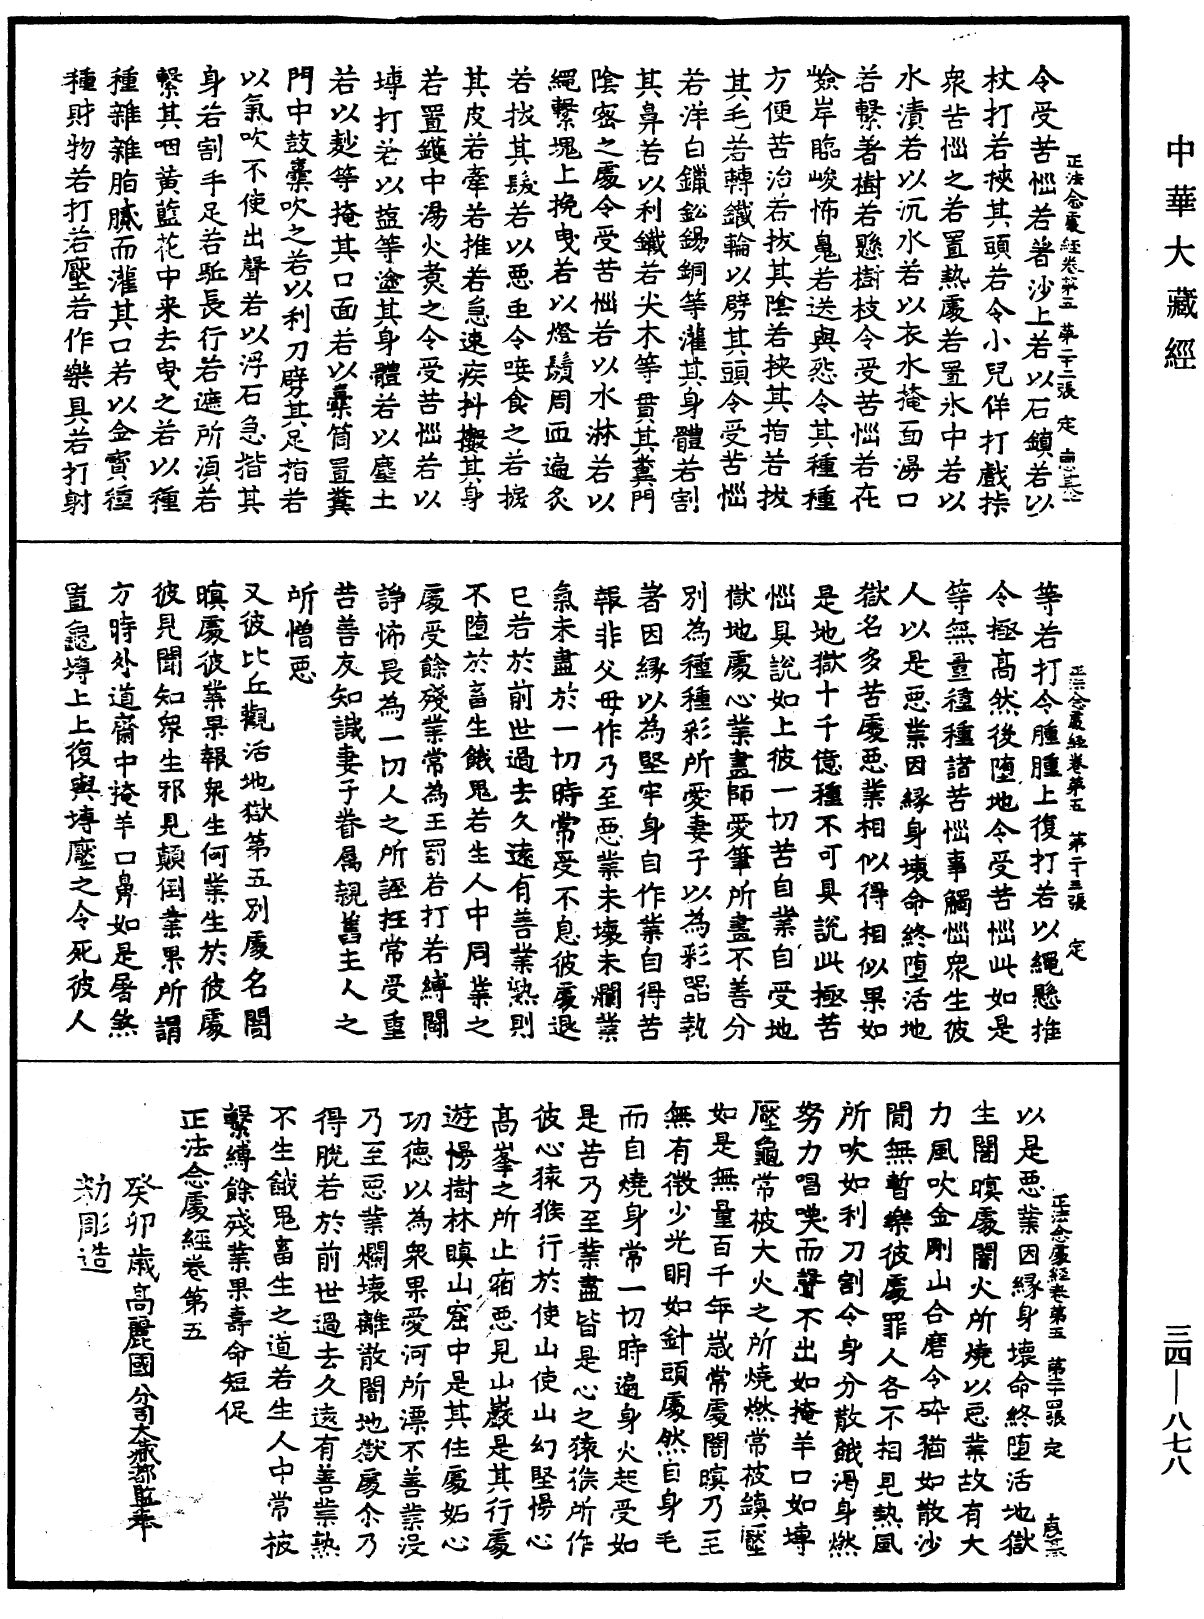 中華大藏經
正法念處經卷第五 第二十二張 定
令受苦惱若著沙上若以石鎖若以
杖打若挾其頭若令小兒佯打戲掉
衆苦惱之若置熱處若置氷中若以
水漬若以沉水若以衣水掩面湯口
若繫著樹若懸樹枝令受苦惱若在
嶮岸臨峻怖鬼若送與怨令其種種
方便苦治若拔其陰若挟其指若拔
其毛若轉鐵輪以劈其頭令受苦惱
若洋白鑞鈆錫銅等灌其身體若割
其鼻若以利鐵若尖木等貫其糞門
陰密之處令受苦惱若以水淋若以
繩繫塊上挽曳若以燈鬚周匝遍炙
若拔其髮若以惡虫令唼食之若振
其皮若牽若推若急速疾抖擻其身
若置鑊中湯火煑之令受苦惱若以
塼打若以塩等塗其身體若以塵土
若以麨等掩其口面若以橐筒置糞
門中鼓橐吹之若以利刀劈其足指若
以氣吹不使出聲若以浮石急揩其
身若割手足若駈長行若遮所湏若
繫其咽黄藍花中来去曳之若以種
種雜雜脂膩而灌其口若以金寳種
種財物若打若壓若作樂具若打射
正法念處經卷第五 第二十三張 定
等若打令腫腫上復打若以繩懸推
令極髙然後堕地令受苦惱此如是
等無量種種諸苦惱事觸惱衆生彼
人以是惡業因緣身壞命終堕活地
獄名多苦處惡業相似得相似果如
是地獄十千億種不可具説此極苦
惱具説如上彼一切苦自業自受地
獄地處心業畫師愛筆所畫不善分
別為種種彩所愛妻子以為彩器執
著因緣以為堅牢身自作業自得苦
報非父母作乃至惡業未壞未爛業
氣未盡於一切時常受不息彼處退
已若於前世過去久遠有善業熟則
不堕於畜生餓鬼若生人中同業之
處受餘殘業常為王罰若打若縛鬪
諍怖畏為一切人之所誣抂常受重
苦善友知識妻子眷属親舊主人之
所憎惡
又彼比丘觀活地獄第五別處名闇
暝處彼業果報衆生何業生於彼處
彼見聞知衆生邪見顛倒業果所謂
方時外道齋中掩羊口鼻如是屠煞
置龜塼上上復與塼壓之令死彼人
正法念處經卷第五 第二十四張 定
以是惡業因緣身壞命終堕活地獄
生闇暝處闇火所燒以惡業故有大
力風吹金剛山合磨令碎猶如散沙
間無暫樂彼處罪人各不相見熱風
所吹如利刀割令身分散餓渴身燃
努力唱喚而聲不出如掩羊口如塼
壓龜常被大火之所燒燃常被鎮壓
如是無量百千年歲常處闇暝乃至
無有微少光明如針頭處然自身毛
而自燒身常一切時遍身火起受如
是苦乃至業盡皆是心之猿猴所作
彼心猿猴行於使山使山幻堅慢心
髙峯之所止宿惡見山巖是其行處
遊慢樹林瞋山窟中是其住處妬心
功徳以為衆果愛河所漂不善業浸
乃至惡業爛壞離散闇地獄處尒乃
得脱若於前世過去久遠有善業熟
不生餓鬼畜生之道若生人中常被
繫縛餘殘業果壽命短促
正法念處經卷第五
癸卯歳髙麗國分司大藏都監奉
勑彫造
三四—八七八